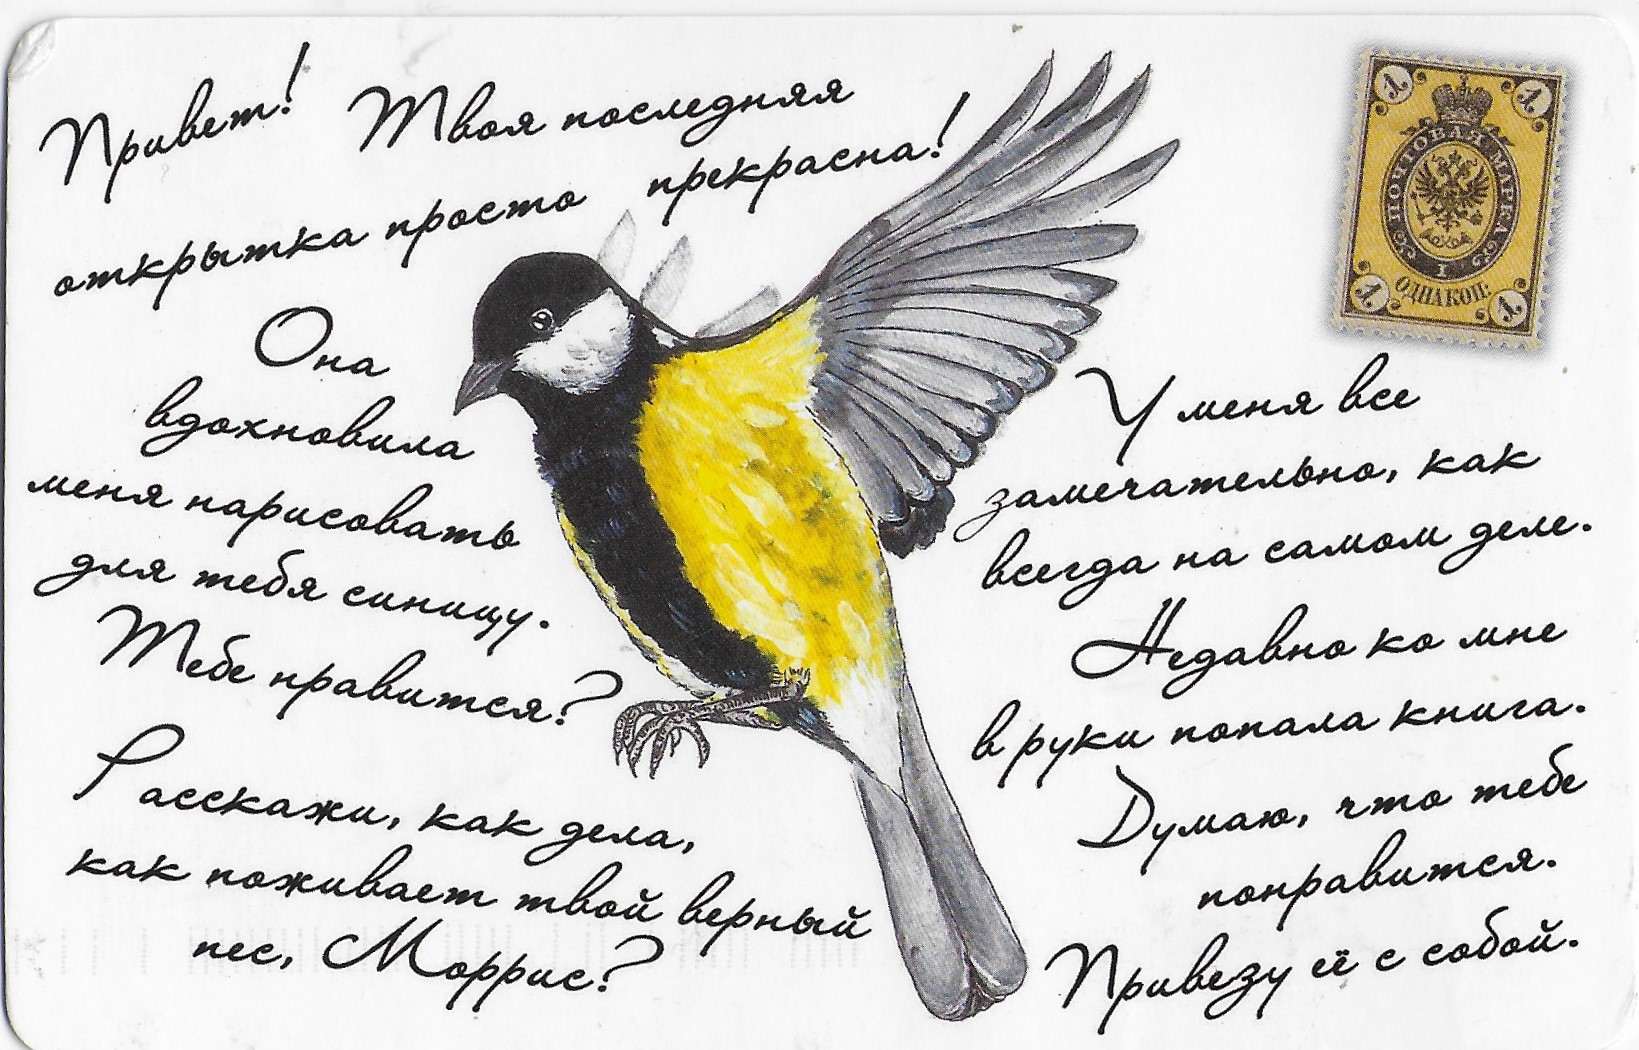 Привет! Твоя последняя
открытка просто прекрасна!
Она
вдохновила
меня нарисовать
для тебя синицу.
Тебе нравится?
Расскажи, как дела,
как поживает твой верный
пес, Моррис?
1 1
ПОЧТОВАЯ МАРКА
1
ОДНА КОП:
1 1
У меня все
замечательно, как
всегда на самом деле.
Недавно ко мне
в руки попала книга.
Думаю, что тебе
понравится.
Привезу её с собой.